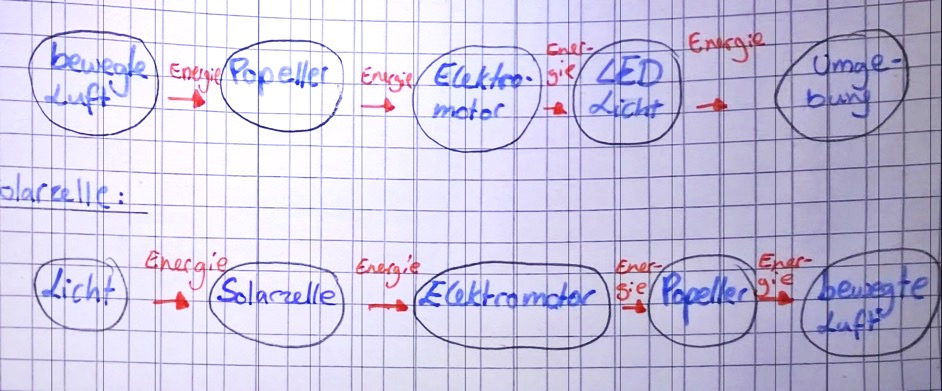 bewegte Luft Energie Popeller Energie Elektro-motor Ener-gie LED Licht Energie Umge-bung
olarzelle:
Licht Energie Solarzelle Energie Elektromotor Ener-gie Popeller Ener-gie bewegte Luft